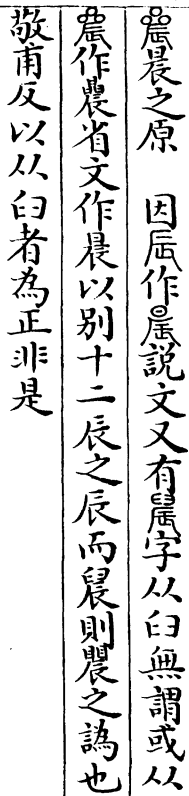 曟之原　因辰作晨説文又有䢅字从臼無謂或从
曟作曟省文作晨以别十二辰之辰而䢅則曟之譌也
敬甫反以从臼者為正非是